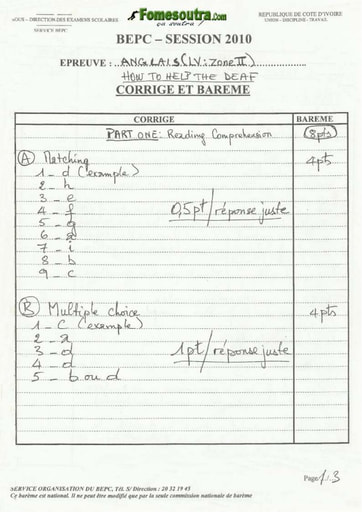 Fomesoutra.com
ça soutra !
DOUS – DIRECTION DES EXAMENS SCOLAIRES
SERVICE BEPC
REPUBLIQUE DE COTE D'IVOIRE
UNION – DISCIPLINE – TRAVAIL
BEPC – SESSION 2010
EPREUVE : ANGLAIS (LV: Zone II)
HOW TO HELP THE DEAF
CORRIGE ET BAREME
CORRIGE BAREME
PART ONE: Reading Comprehension (8pts)
A Matching 4pts
1 _ d (example)
2 _ h
3 _ e
4 _ f 0,5pt/réponse juste
5 _ g
6 _ a
7 _ i
8 _ b
9 _ c
B Multiple choice 4pts
1 _ C (example)
2 _ a
3 _ d 1pt/réponse juste
4 _ d
5 _ b ou d
Page 1/.3
SERVICE ORGANISATION DU BEPC, Tél. S/ Direction : 20 32 19 45
Ce barème est national. Il ne peut être modifié que par la seule commission nationale de barème